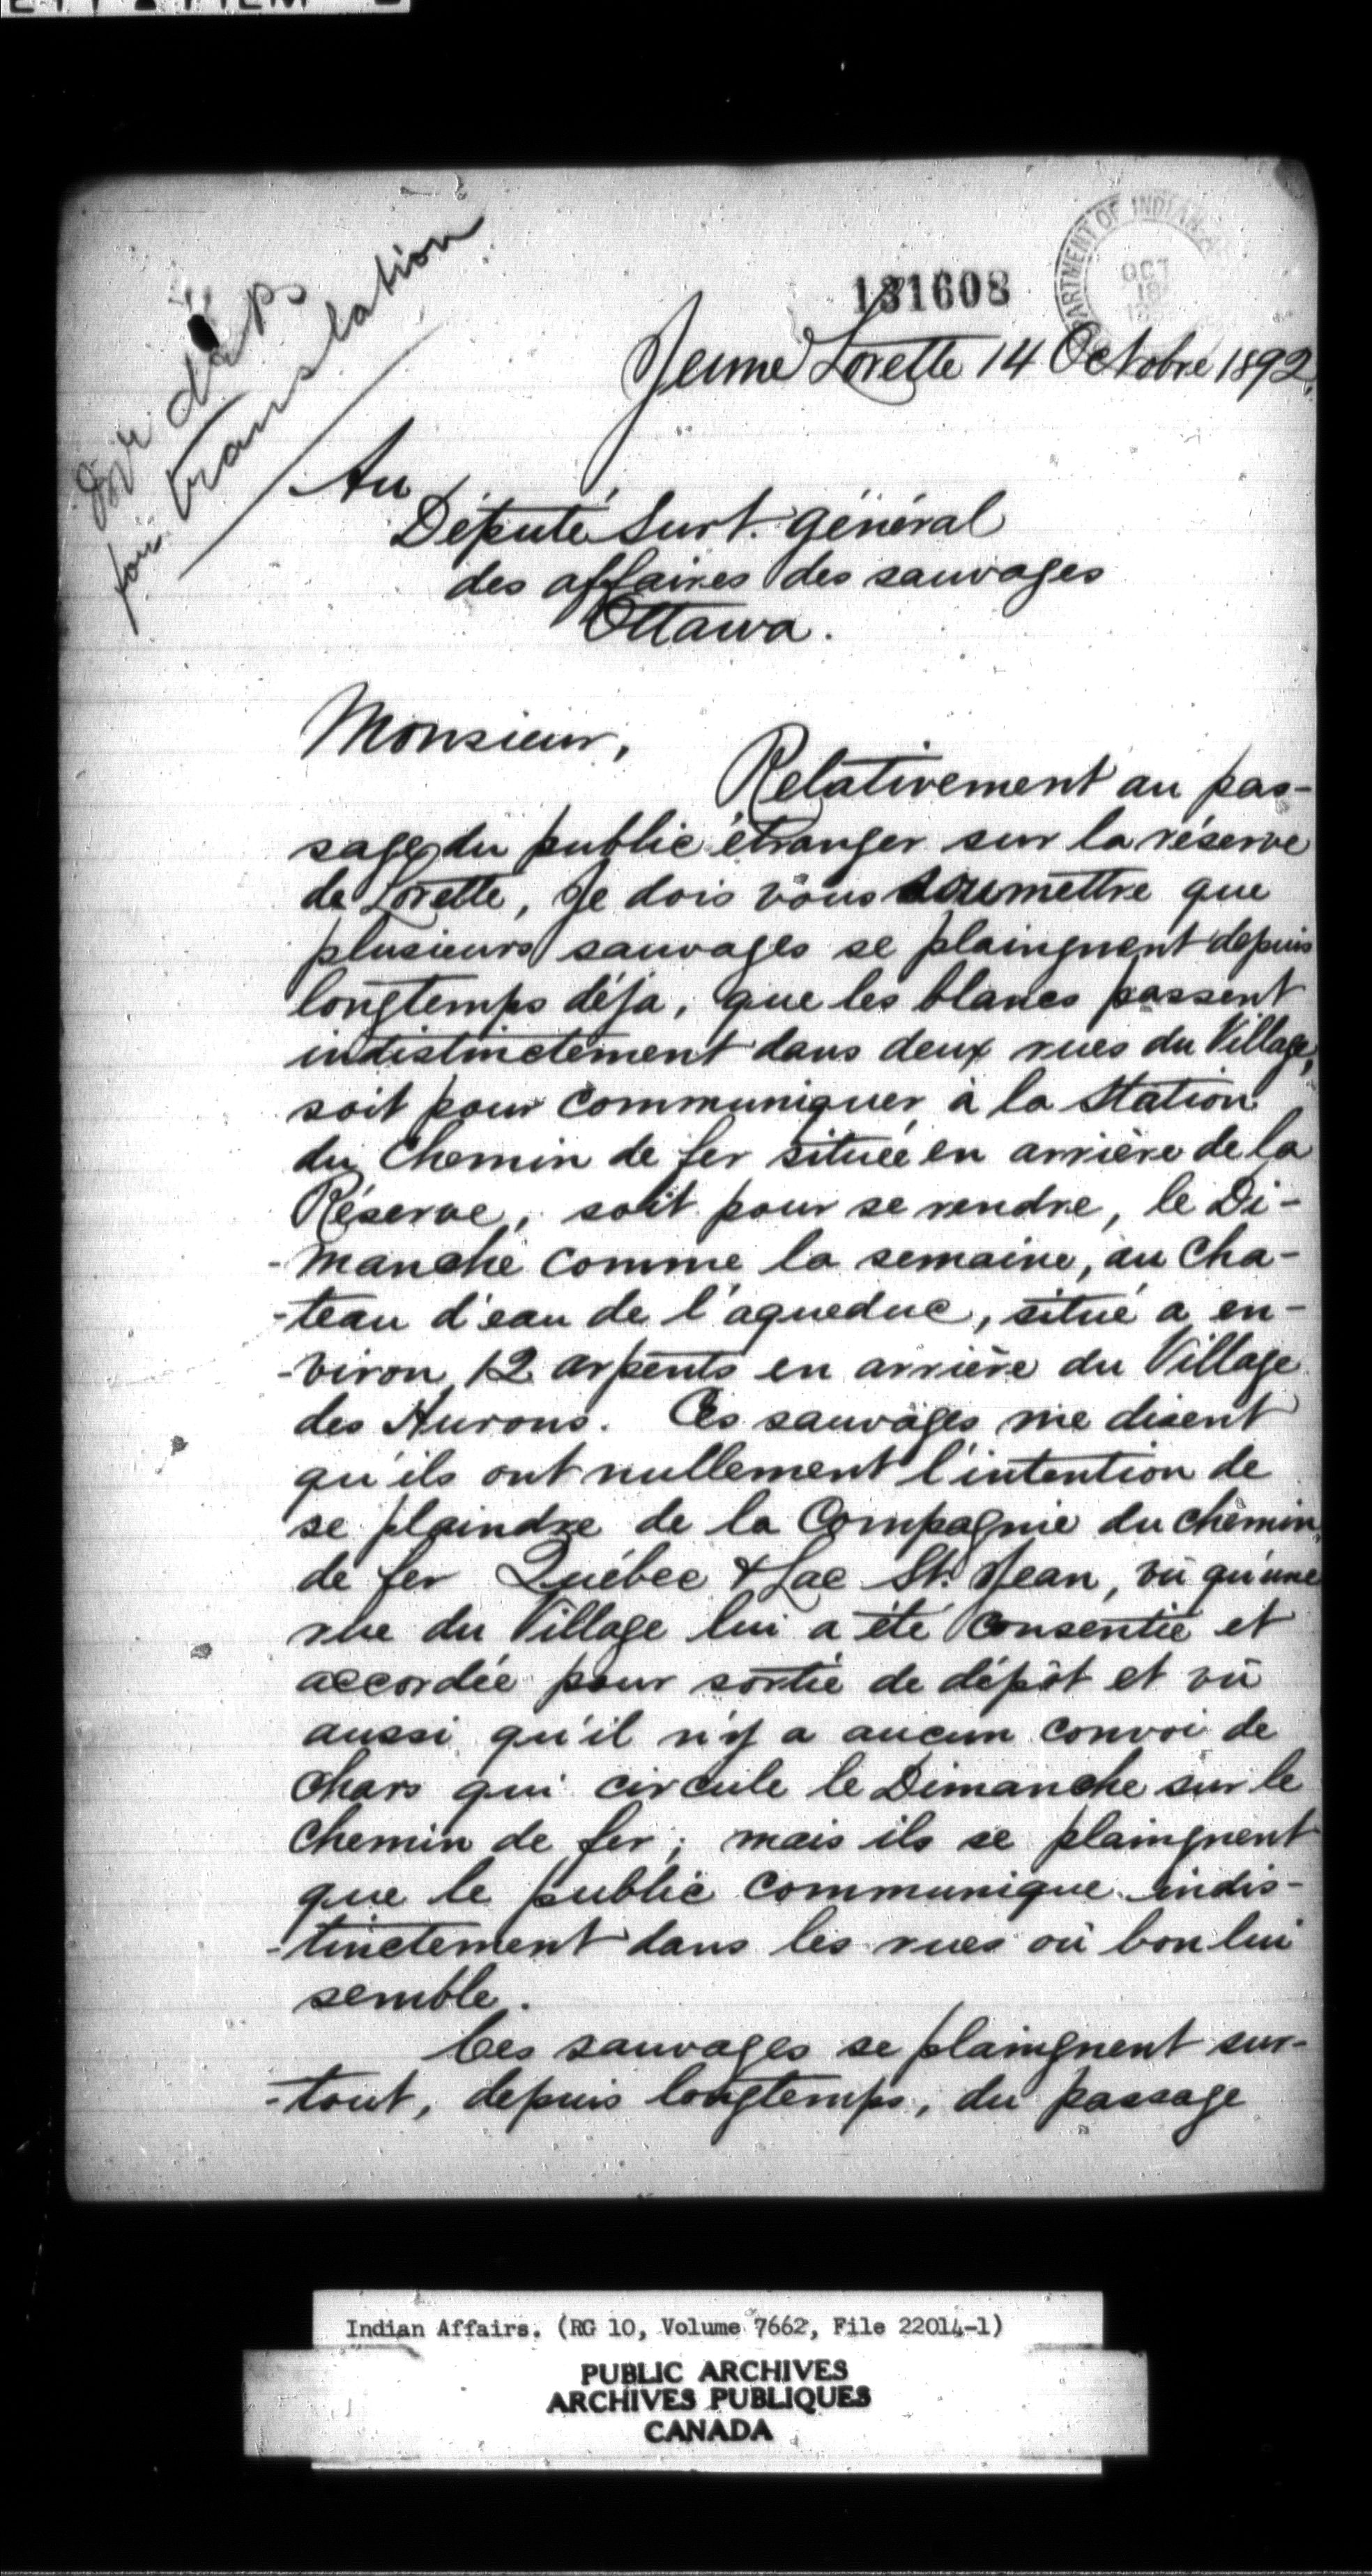 131608
DEPARTMENT OF INDIAN
OCT
18
Jeune Lorette 14 Octobre 1892,
for translation
Au
Député Surt. général
des affaires des sauvages
Ottawa.
Monsieur,
Relativement au pas-
sage du public étranger sur la réserve
de Lorette, Je dois vous soumettre que
plusieurs sauvages se plaingnent depuis
longtemps déja, que les blancs passent
indistinctement dans deux rues du Village,
soit pour communiquer à la Station
du Chemin de fer située en arrière de la
Réserve, soit pour se rendre, le Di-
-manche comme la semaine, au Cha-
-teau d'eau de l'aqueduc, situé a en-
-viron 12 arpents en arrière du Village
des Hurons. Ces sauvages me disent
qu'ils ont nullement l'intention de
se plaindre de la Compagnie du chemin
de fer Québec & Lac St. Jean, vû qu'une
rue du Village lui a été consentie et
accordée pour sortie de dépôt et vû
aussi qu'il n'y a aucun convoi de
chars qui circule le Dimanche sur le
Chemin de fer; mais ils se plaingnent
que le public communique indis-
-tinctement dans les rues où bon lui
semble.
Ces sauvages se plaingnent sur-
-tout, depuis longtemps, du passage
Indian Affairs. (RG 10, Volume 7662, File 22014-1)
PUBLIC ARCHIVES
ARCHIVES PUBLIQUES
CANADA